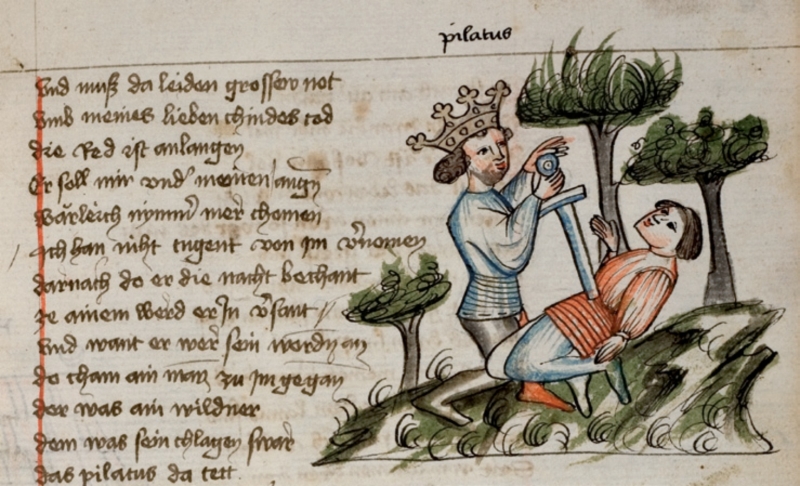 pilatus
Vnd muß da leiden grosser not
Vmb meines lieben chindes tod
die Red ist anlangen
Er soll mir vnd meinen augn
Wärleich nymmer mer chomen
Ich han niht tugent von im v'nomen
darnach do er die nacht bechant
ze ainem werd er In v'sant
Vnd want er wer sein wordn an
do cham ain man zu Im gegan
der was ain wildner
dem was sein chlagen swar
das pilatus da tett